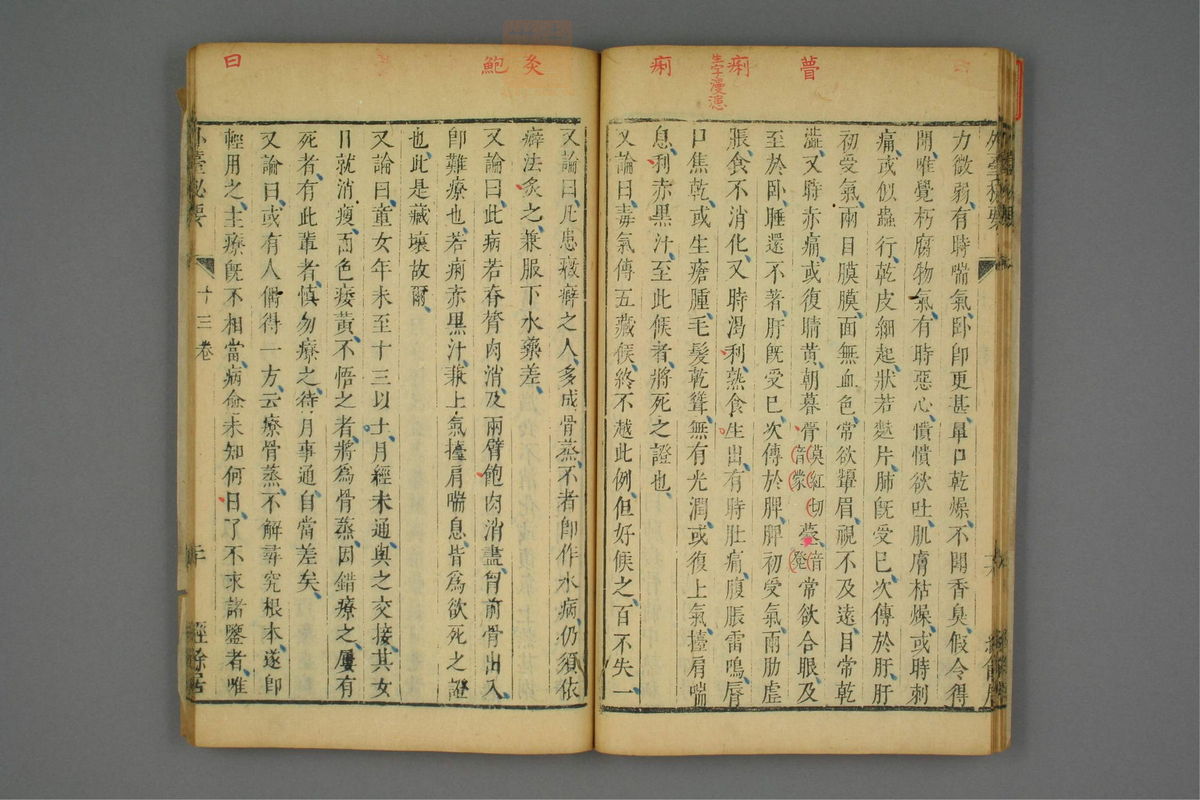 瞢
痢
生字漫漶
痢
外臺秘要
力微弱有時喘氣臥卽更甚鼻口乾燥不聞香臭假令得
聞唯覺朽腐物氣有時惡心憒憒欲吐肌膚枯燥或時刺
痛或似蟲行乾皮細起狀若麩片肺旣受已次傳於肝肝
初受氣兩目膜膜面無血色常欲顰眉視不及遠目常乾
澁又時赤痛或復睛黃朝暮瞢莫紅切音蒙䔲音登常欲合眼及
至於臥睡還不著肝旣受已次傳於脾脾初受氣兩肋虛
脹食不消化又時渴利熟食生出有時肚痛腹脹雷鳴脣
口焦乾或生瘡腫毛髮乾聳無有光潤或復上氣擡肩喘
息利赤黑汁至此候者將死之證也
又論曰毒氣傳五藏候終不越此例但好候之百不失一
灸
鮑
曰
又論曰凡患癥癖之人多成骨蒸不者卽作水病仍須依
癖法炙之兼服下水藥差
又論曰此病若脊膂肉消及兩臂飽肉消盡胷前骨出入
卽難療也若痢赤黑汁兼上氣擡肩喘息皆爲欲死之證
也此是藏壞故爾
又論曰童女年未至十三以上月經未通與之交接其女
日就消瘦面色痿黃不悟之者將爲骨蒸因錯療之屢有
死者有此輩者愼勿療之待月事通自當差矣
又論曰或有人偶得一方云療骨蒸不解尋究根本遂卽
輕用之主療旣不相當病愈未知何日了不求諸鑒者唯
外臺秘要
十三卷
二十
經餘居